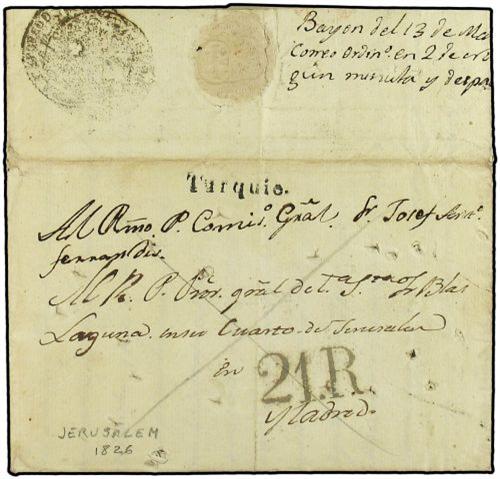 Bayon del 13 de Ma
Correo Ordin.º en 2 de
gun minuta y desp
Turquie.
Al Rmo. P. Comis.º Gñal. Fr. Josef
fernandis.
Al R. P. Pror. gñal de Tª Stª Fr Blas
Laguna en su Cuarto de Jerusalen
en
21.R.
Madrid.
JERUSALEM
1826